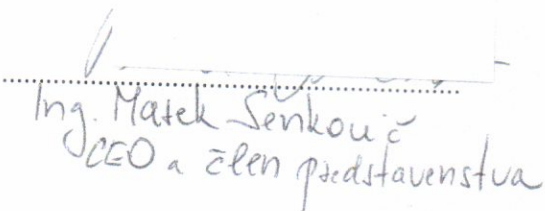 Ing. Marek Senkovič
CEO a člen predstavenstva